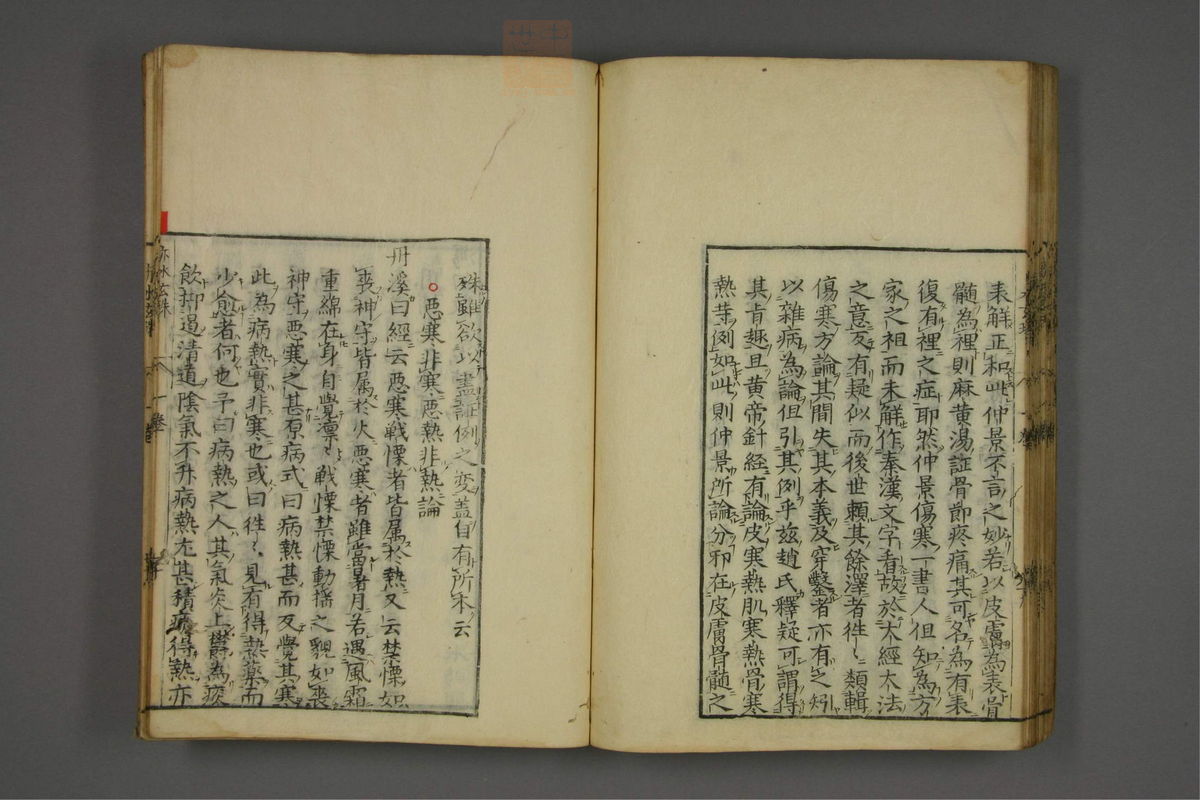 表解正和此仲景不言之妙若以皮膚為表骨
髓為裡則麻黄湯証骨節疼痛其可名為有表
復有裡之症耶然仲景傷寒一書人但知為方
家之祖而未解作秦漢文字看故於大經大法
之意反有疑似而後世頼其餘澤者徃〻類輯
傷寒方論其間失其本義及穿鑿者亦有之矧
以雜病為論但引其例乎兹趙氏釋疑可謂得
其肯趣且黄帝針経有論皮寒熱肌寒熱骨寒
熱等例如此則仲景所論分邪在皮膚骨髓之
殊雖欲以盡証例之変蓋自有所本云
惡寒非寒惡熱非熱論
丹溪曰經云惡寒戦慄者皆属於熱又云禁慄如
喪神守皆属於火惡寒者雖當暑月若遇風霜
重綿在身自覺凛〻戦慄禁慄動揺之貌如喪
神守惡寒之甚原病式曰病熱甚而反覺其寒
此為病熱實非寒也或曰徃〻見有得熱藥而
少愈者何也予曰病熱之人其氣炎上欝為痰
飲抑遏清道陰氣不升病熱尤甚積痰得熱亦
赤水玄珠